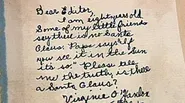 Dear Editor,
I am eight years old
Some of my little friends
say there is no Santa
Claus. Papa says, "If
you see it in the Sun
its so." Please tell
me the truth, is there
a Santa Claus?
Virginia O'Hanlon